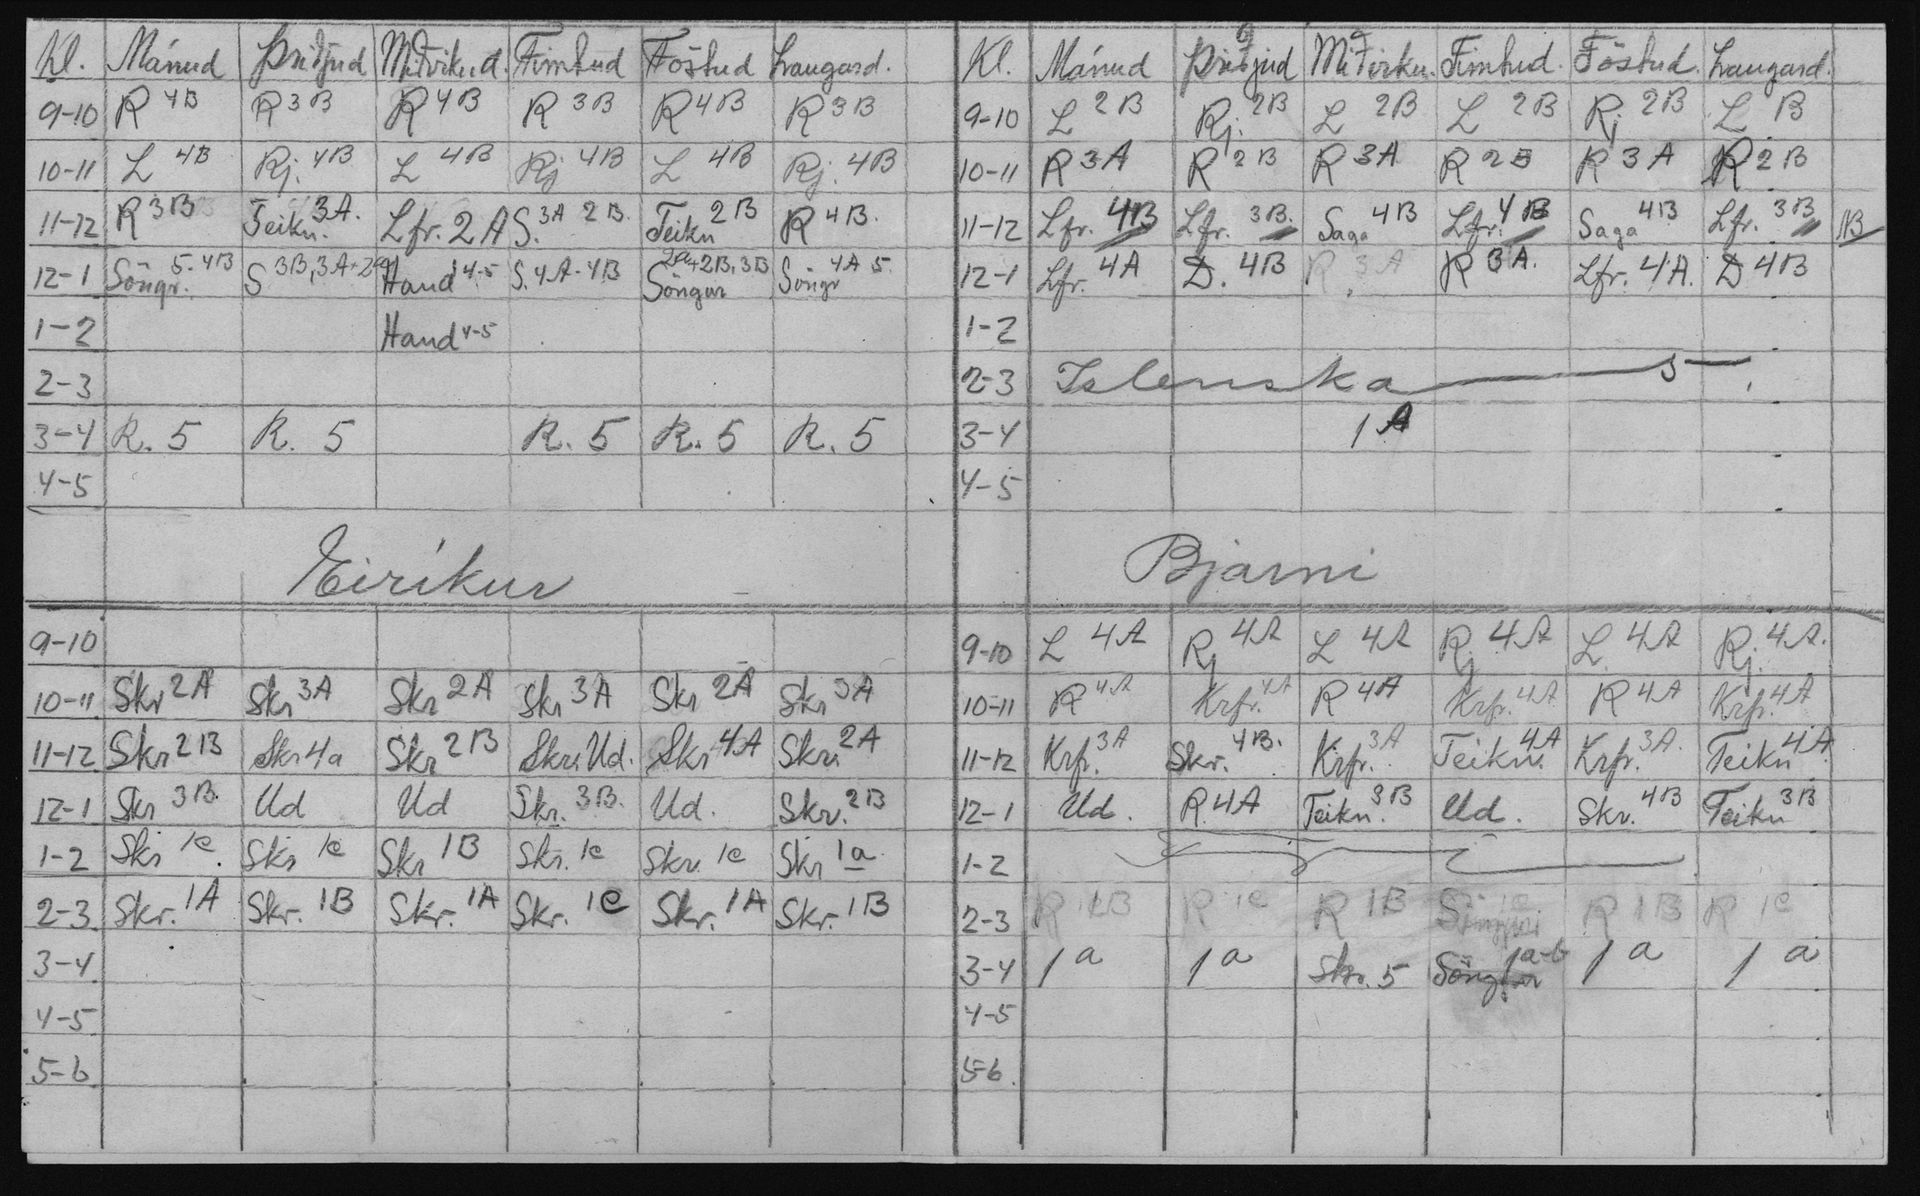 Kl. Mánud Þriðjud Miðvikud. Fimtud Föstud Laugard.
9-10 R 4B R 3B R 4B R 3B R 4B R 3B
10-11 L 4B Rj. 4B L 4B Rj 4B L 4B Rj. 4B
11-12 R 3B Teikn. 3A. Lfr. 2A S. 3A 2B. Teikn 2B R 4B.
12-1 Söngr. 5-4B S 3B, 3A+2a Hand 4-5 S. 4A-4B Söngur 2a+2B, 3B Söngr 4A 5.
1-2 Hand 4-5
2-3
3-4 R. 5 R. 5 R. 5 R. 5 R. 5
4-5
Eiríkur
Kl. Mánud Þriðjud Miðviku. Fimtud. Föstud. Laugard.
9-10 L 2B Rj. 2B L 2B L 2B Rj 2B L B
10-11 R 3A R 2B R 3A R 2B R 3A R 2B
11-12 Lfr. 4B Lfr. 3B. Saga 4B Lfr. 4B Saga 4B Lfr. 3B 1B
12-1 Lfr. 4A D. 4B R 3A R 3A. Lfr. 4A. D 4B
1-2
2-3 Islenska 5
3-4 1A
4-5
Bjarni
9-10
10-11 Skr 2A Skr 3A Skr 2A Skr 3A Skr 2A Skr 3A
11-12 Skr 2B Skr 4a Skr 2B Skr. Ud. Skr 4A Skr. 2A
12-1 Skr 3B. Ud Ud Skr. 3B. Ud. Skr. 2B
1-2 Skr 1c. Skr 1c Skr 1B Skr. 1c Skr. 1c Skr 1a
2-3 Skr. 1A Skr. 1B Skr. 1A Skr. 1C Skr. 1A Skr. 1B
3-4
4-5
5-6
9-10 L 4A Rj 4A L 4A Rj 4A L 4A Rj. 4A.
10-11 R 4A Krfr. 4A R 4A Krfr. 4A R 4A Krfr. 4A
11-12 Krfr. 3A Skr. 4B. Krfr. 3A Teikn. 4A Krfr. 3A. Teikn 4A
12-1 Ud. R. 4A Teikn. 3B Ud. Skr. 4B Teikn 3B
1-2
2-3 R 1B R 1c R 1B R 1B R 1c
3-4 1a 1a Skr. 5 Söngur 1a-b 1a 1a
4-5
5-6.